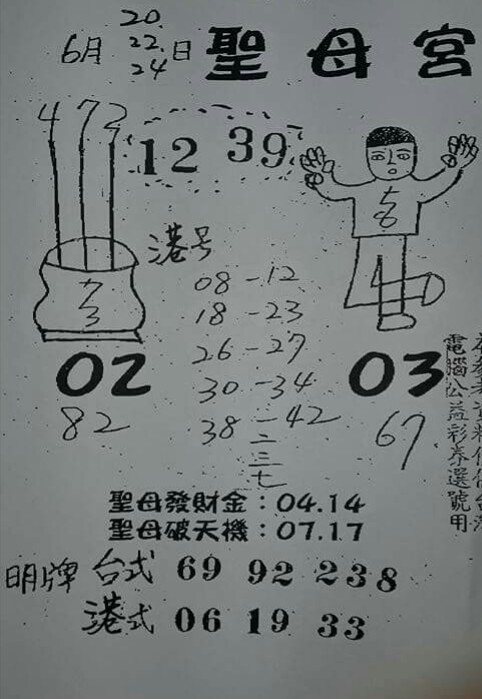 聖母宮
6月 20. 22. 24 日
4 7 2
12 39
5
8
6
1
7
3
港号
08-12
18-23
26-27
30-34
38-42
二
三
七
02
82
03
67.
聖母發財金：04.14
聖母破天機：07.17
明牌 台式 69 92 238
港式 06 19 33
電腦公益彩券選號用